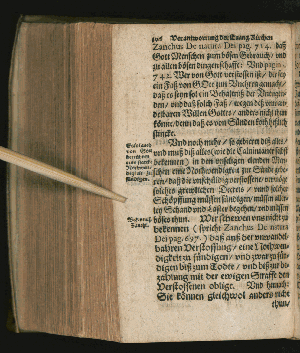 Verantwortung der Evang. Kirchen
Zanchus De natura Dei pag. 714. daß
Gott Menschen zum bösen Gebrauch/ und
zu allen bösen dingen schaffe: Und pag.
742. Wer von Gott verstossen ist/ die sey
ein Faß von GOtt zun Unehren gemacht/
daß es seyn sol ein Behaltniß der Untugen-
den/ und daß solch Faß/ wegen deß unwan-
delbaren Willen Gottes/ anders nicht thun
könne/ denn daß es von Sünden
stincke.
Und noch mehr/ so gebieren diß alles/
und muß diß alles (wie die Calvinianer selbst
bekennen) in den unseligen elenden Men-
schen eine Nothwendigkeit zur Sünde
daß die unschuldig verstossene/ vermöge
solches grewlichen Decrets/ und solcher
Schöpffung müssen sündigen/ müssen aller-
ley Schand und Laster begehen/ und müssen
böses thun. Wir scheuen uns nicht zu
bekennen (spricht Zanchus De natura
Dei pag. 697.) daß auß der unwandel-
bahren Verstossung/ eine Nothwen-
digkeit zu sündigen/ und zwar zu sün-
digen biß zum Todte/ und deß zu be-
zahlung mit der ewigen Straffe den
Verstossenen obliege. Und hernach:
Sie können gleichwol anders nicht
thun/
von Gott